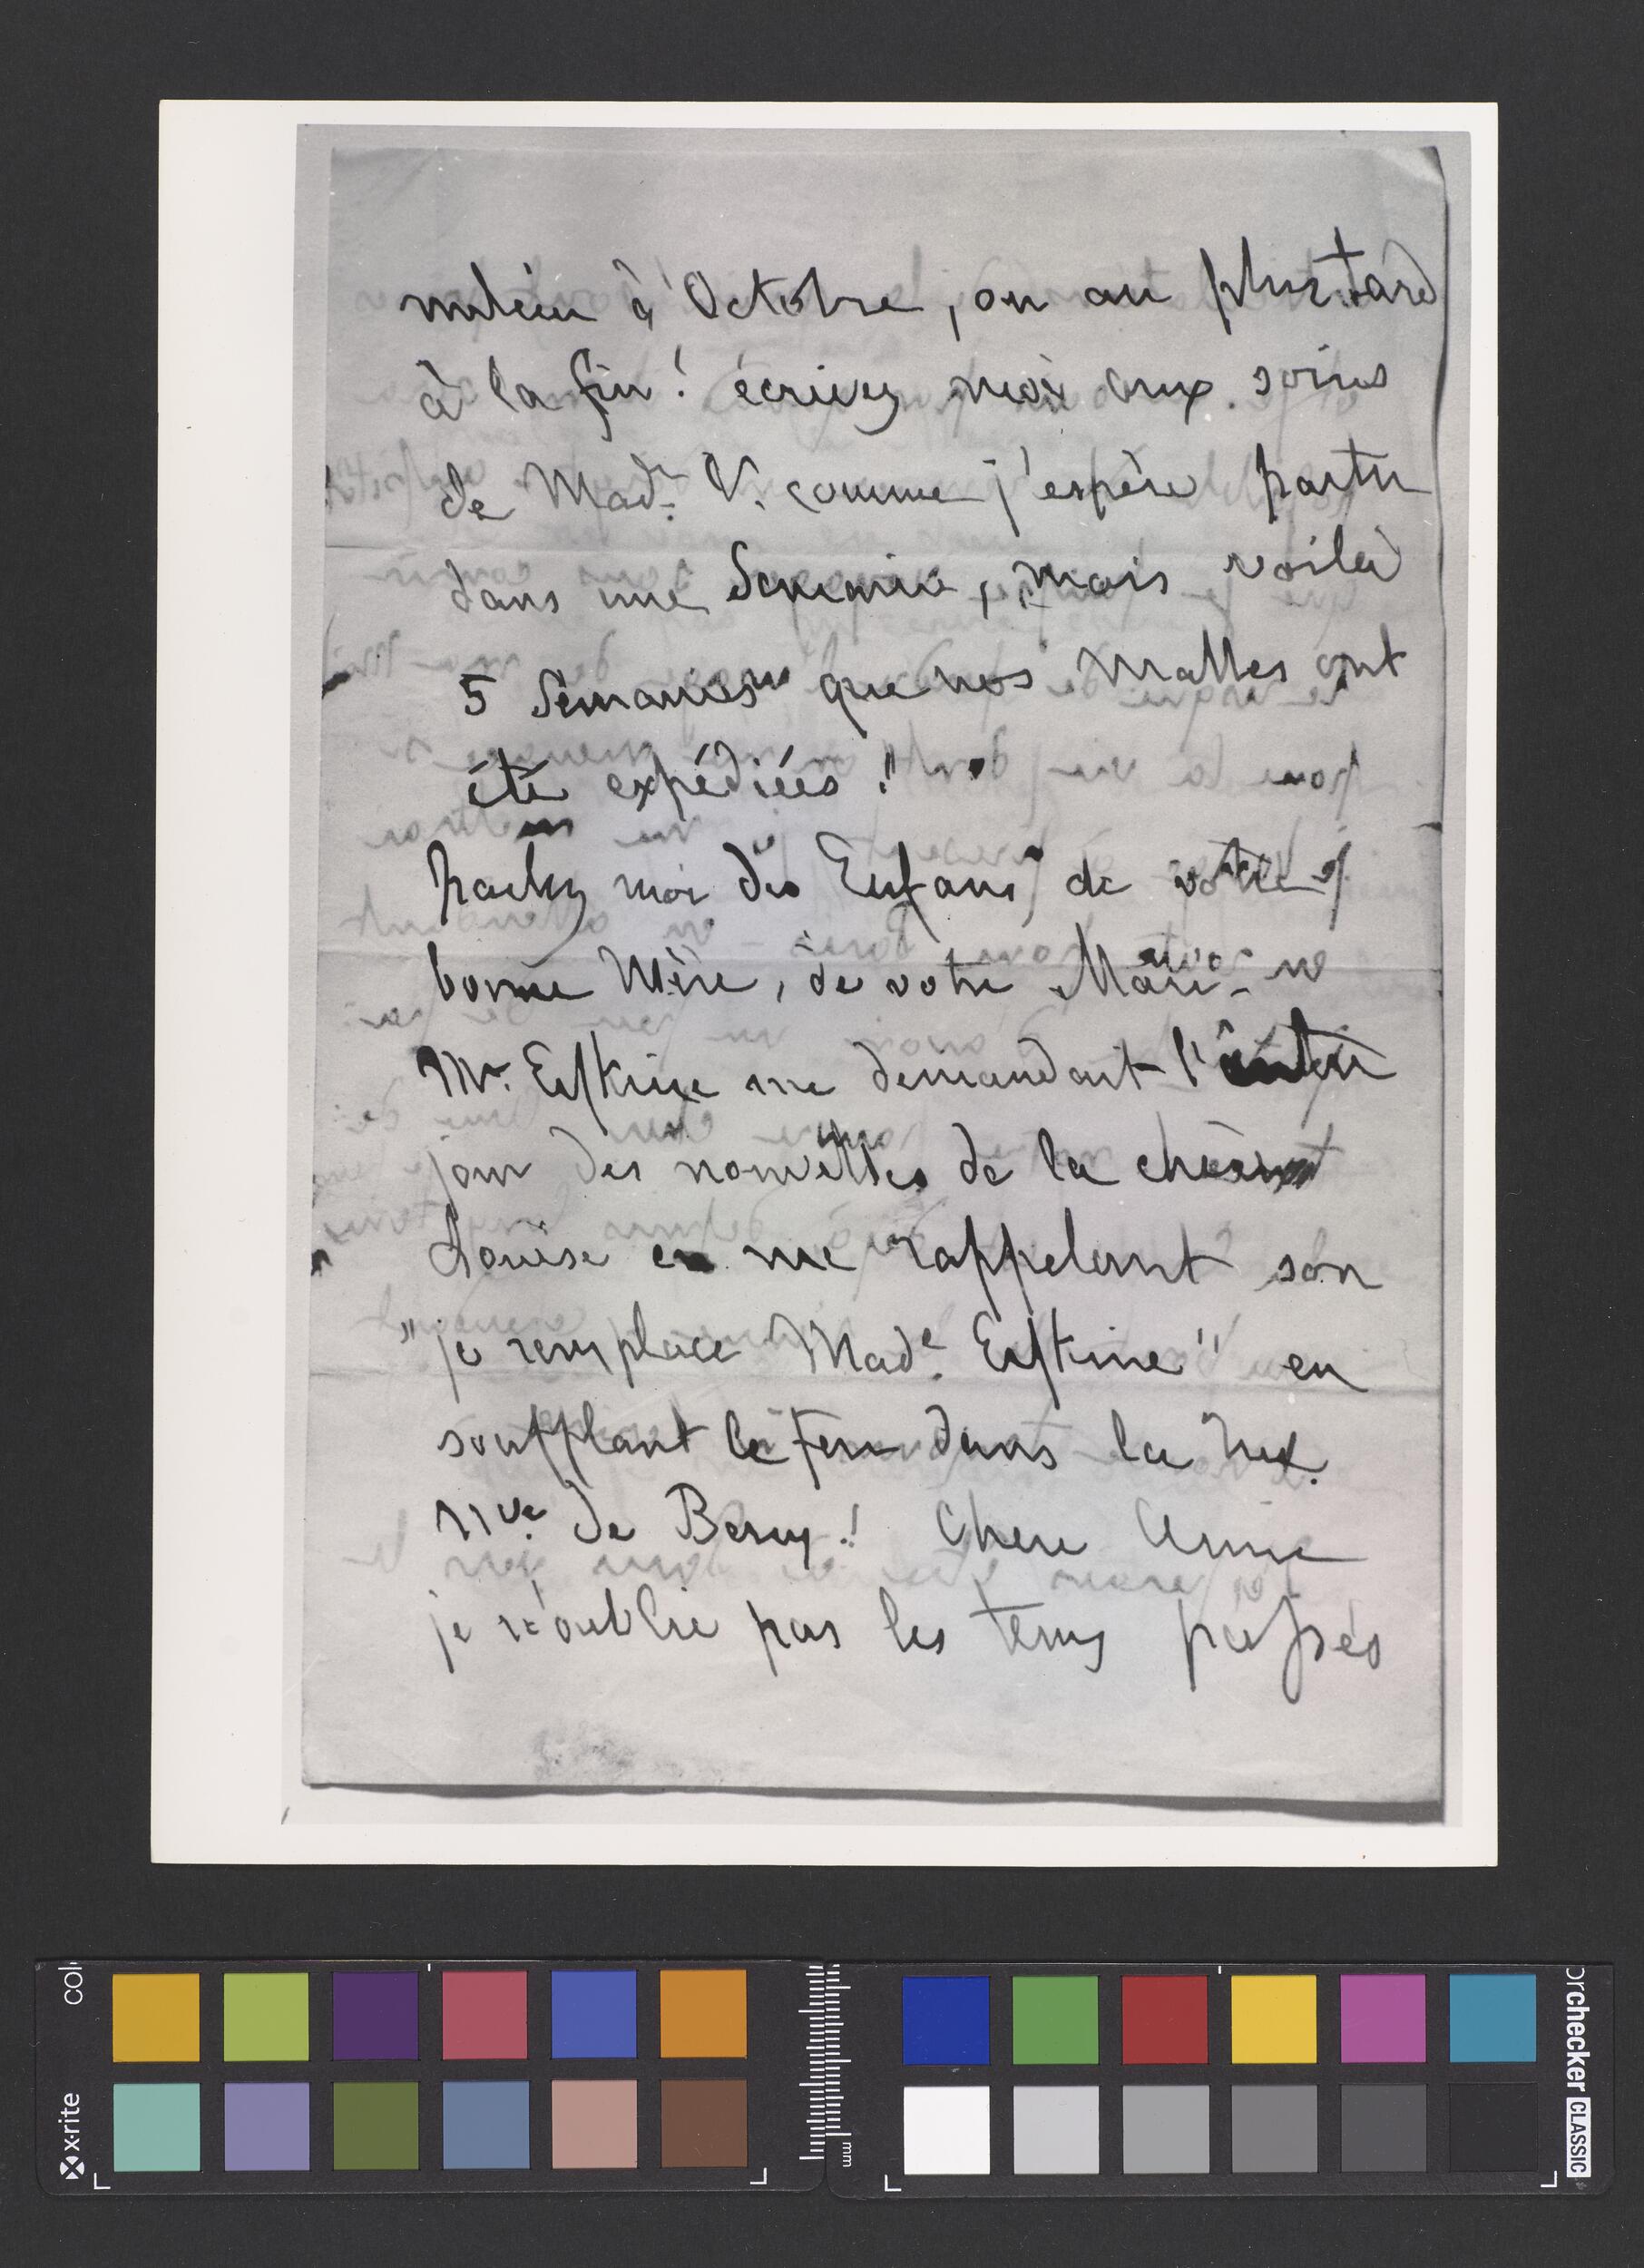 milieu d'Octobre, ou au plus tard
à la fin! écrivez moi aux soins
de Made. V. comme j'espère partir
dans une Semaine, mais voilà
5 Semaines que nos Malles ont
été expédiées!!
parlez moi des Enfans, de votre
bonne Mère, de votre Mari.
Mr. Erskine me demandait l'autre
jour des nouvelles de la chère
Louise en me rappelant son
"je remplace Made. Erskine" en
soufflant le feu dans la rue
nve. de Berry! Chere Amie
je n'oublie pas les tems passés
x·rite
mm
checker CLASSIC